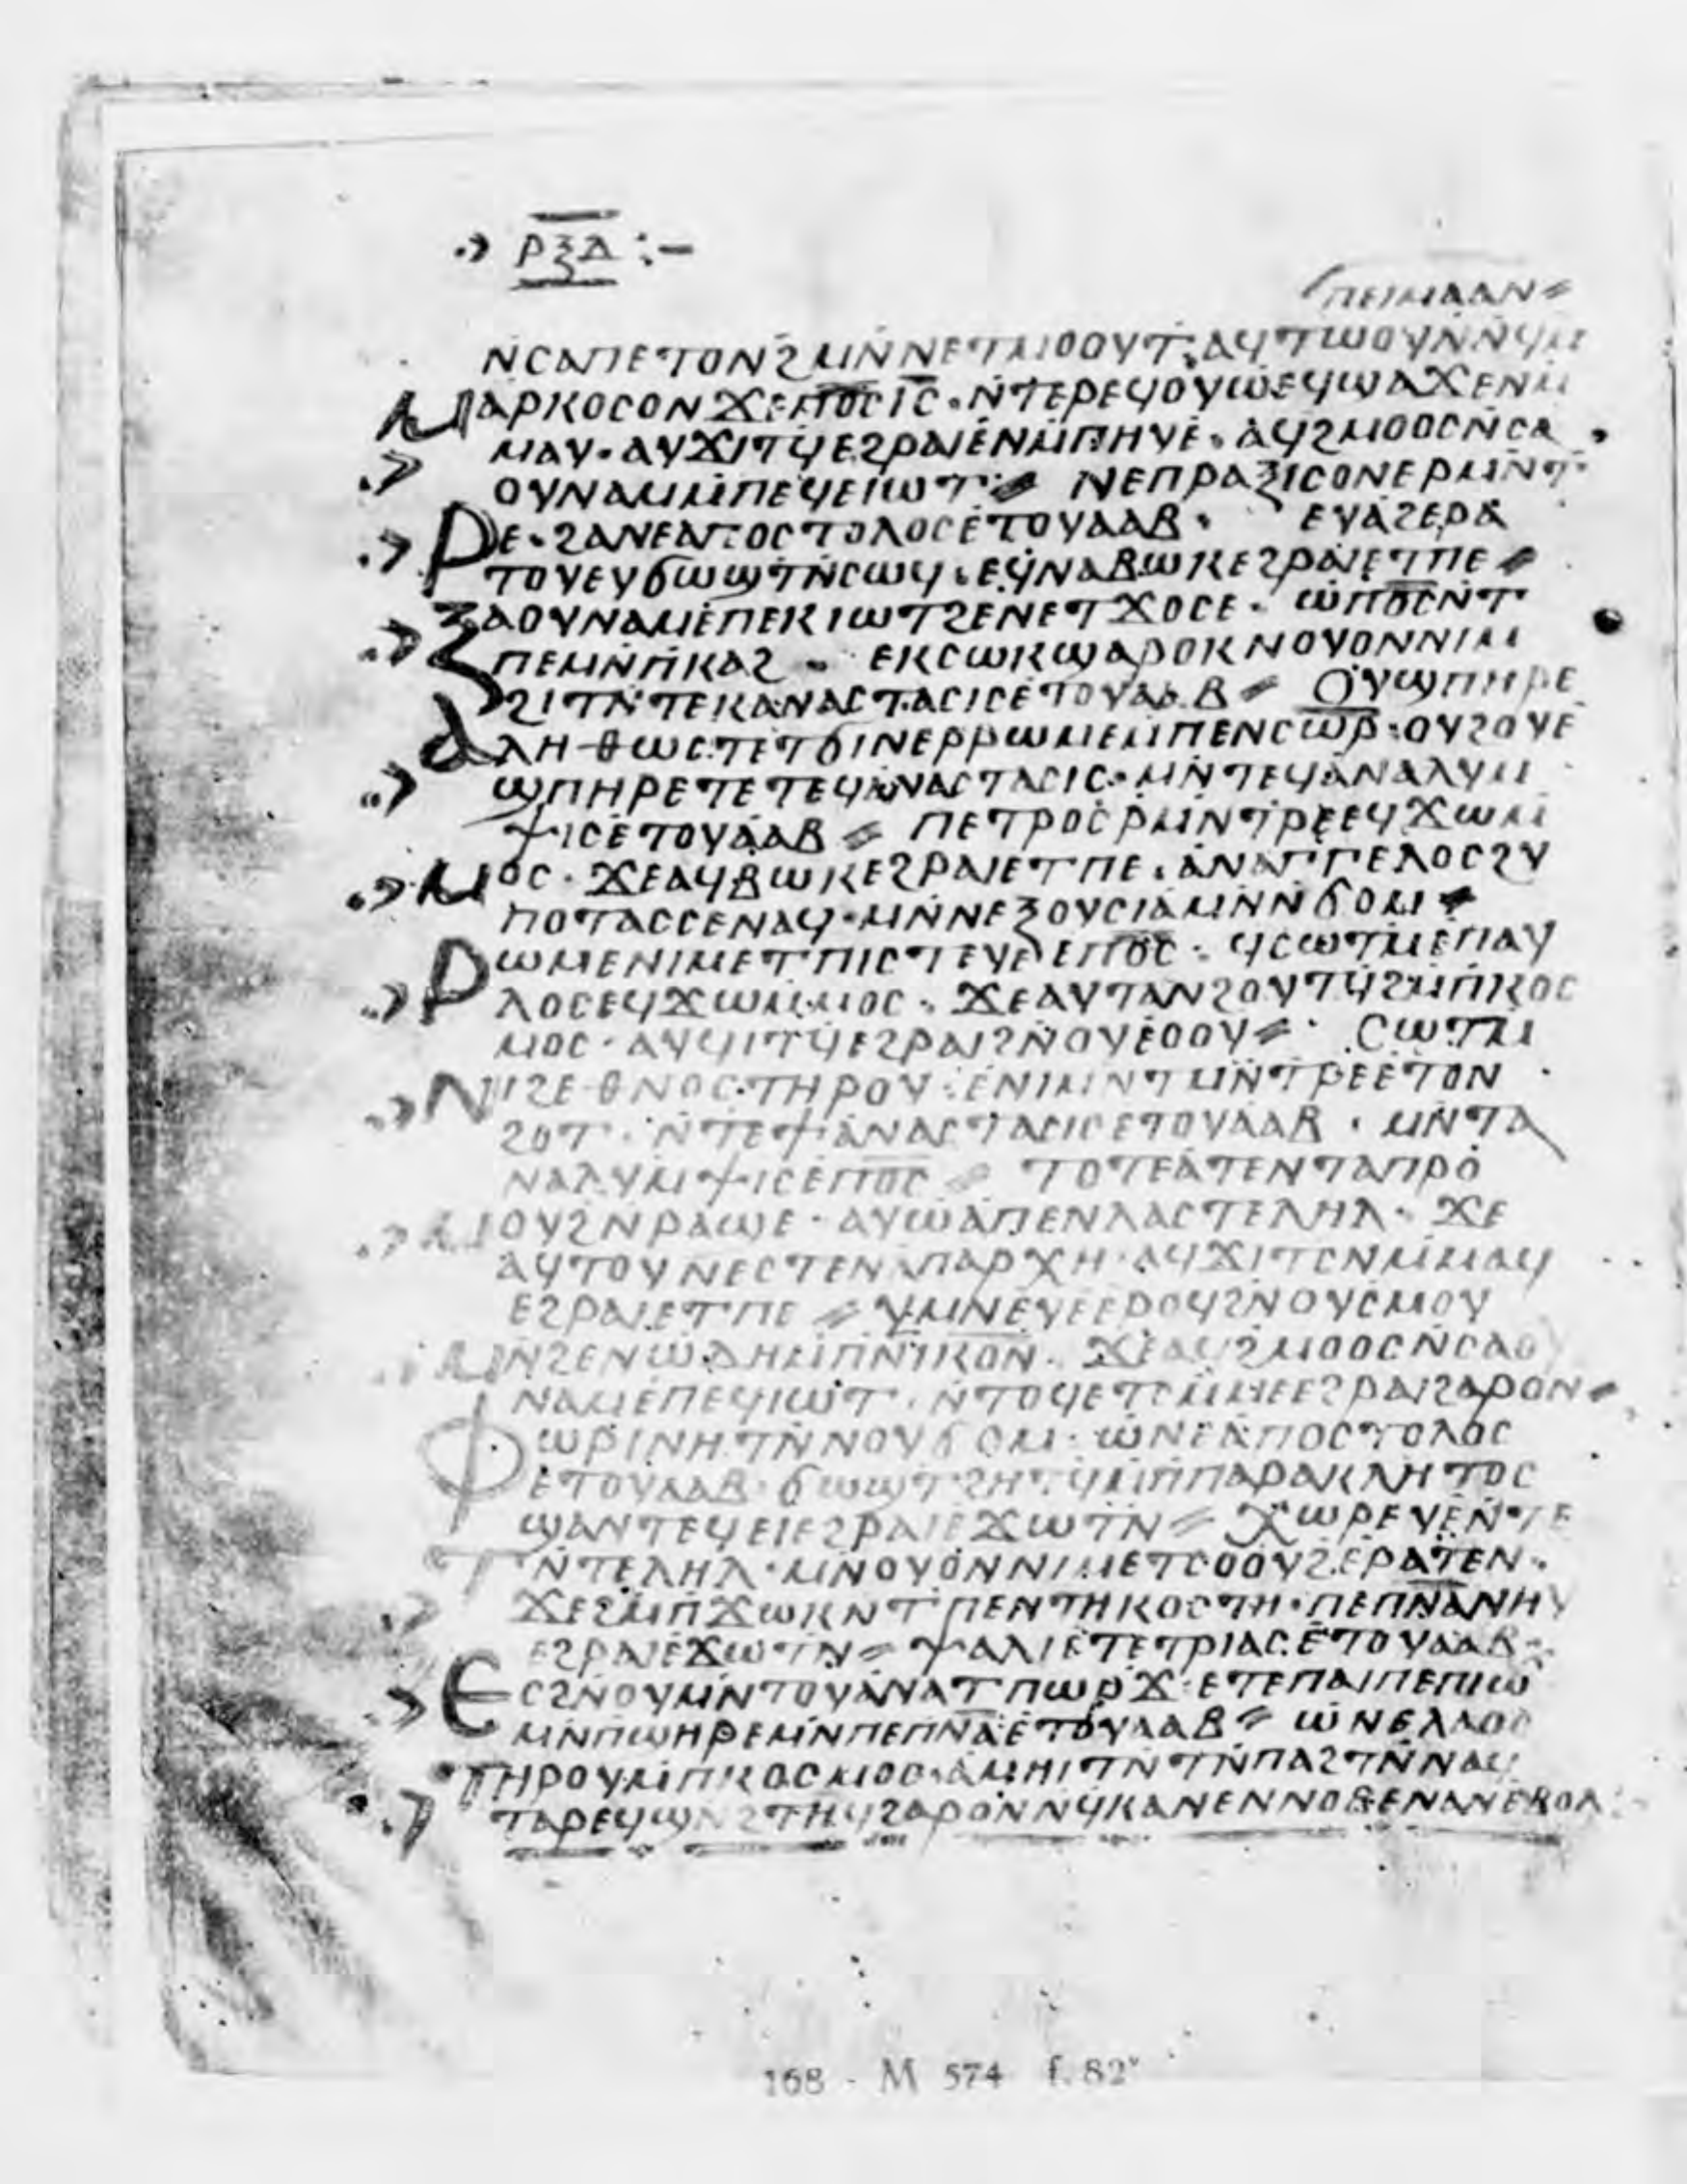 ⲣⲝⲇ :–
ⲡⲉⲓⲙⲁⲁⲛ
ⲛⲥⲁⲡⲉⲧⲟⲛϩⲙⲛⲛⲉⲧⲙⲟⲟⲩⲧ· ⲁϥⲧⲱⲟⲩⲛ
ⲙⲁⲣⲕⲟⲥⲟⲛϫⲉⲡ⳪ⲓ̅ⲥ̅· ⲛⲧⲉⲣⲉϥⲟⲩⲱⲉϥϣⲁϫⲉⲛⲙ
ⲙⲁⲩ· ⲁⲩϫⲓⲧϥⲉϩⲣⲁⲓⲉⲛⲙⲡⲏⲩⲉ· ⲁϥϩⲙⲟⲟⲥⲛⲥⲁ
ⲟⲩⲛⲁⲙⲙⲡⲉϥⲉⲓⲱⲧ ⲛⲉⲡⲣⲁⲝⲓⲥⲟⲛⲉⲣⲙⲛⲧ
ⲣⲉ· ϩⲁⲛⲉⲁⲡⲟⲥⲧⲟⲗⲟⲥⲉⲧⲟⲩⲁⲁⲃ· ⲉⲩⲁϩⲉⲣⲁ
ⲧⲟⲩⲉⲩϭⲱϣⲧⲛⲥⲱϥ· ⲉϥⲛⲁⲃⲱⲕⲉϩⲣⲁⲓⲉⲧⲡⲉ
ⲍⲁⲟⲩⲛⲁⲙⲉⲡⲉⲕⲓⲱⲧϩⲉⲛⲉⲧϫⲟⲥⲉ· ⲱⲡ⳪ⲛⲧ
ⲡⲉⲙⲛⲡⲕⲁϩ· ⲉⲕⲥⲱⲕϣⲁⲣⲟⲕⲛⲟⲩⲟⲛⲛⲓⲙ
ϩⲓⲧⲛⲧⲉⲕⲁⲛⲁⲥⲧⲁⲥⲓⲥⲉⲧⲟⲩⲁⲁⲃ ⲟⲩϣⲡⲏⲣⲉ
ⲁⲗⲏⲑⲱⲥⲧⲉⲧϭⲓⲛⲉⲣⲣⲱⲙⲉⲙⲡⲉⲛⲥⲱ̅ⲣ̅· ⲟⲩϩⲟⲩⲉ
ϣⲡⲏⲣⲉⲧⲉⲧⲉϥⲁⲛⲁⲥⲧⲁⲥⲓⲥ· ⲙⲛⲧⲉϥⲁⲛⲁⲗⲩⲙ
ⲯⲓⲥⲉⲧⲟⲩⲁⲁⲃ ⲡⲉⲧⲣⲟⲥⲣⲙⲛⲧⲣⲉⲉϥϫⲱⲙ
ⲙⲟⲥ· ϫⲉⲁϥⲃⲱⲕⲉϩⲣⲁⲓⲉⲧⲡⲉ· ⲁⲛⲁⲅⲅⲉⲗⲟⲥϩⲩ
ⲡⲟⲧⲁⲥⲥⲉⲛⲁϥ· ⲙⲛⲛⲉⲝⲟⲩⲥⲓⲁⲙⲛⲛϭⲟⲙ
ⲣⲱⲙⲉⲛⲓⲙⲉⲧⲡⲓⲥⲧⲉⲩⲉⲉⲡ⳪· ϥⲥⲱⲧⲙⲉⲡⲁⲩ
ⲗⲟⲥⲉϥϫⲱⲙⲙⲟⲥ· ϫⲉⲁⲩⲧⲁⲛϩⲟⲩⲧϥϩⲙⲡⲕⲟⲥ
ⲙⲟⲥ· ⲁⲩϥⲓⲧϥⲉϩⲣⲁⲓϩⲛⲟⲩⲉⲟⲟⲩ ⲥⲱⲧⲙ
ⲛⲓϩⲉⲑⲛⲟⲥⲧⲏⲣⲟⲩ· ⲉⲛⲓⲙⲛⲧⲙⲛⲧⲣⲉⲉⲧⲟⲛ
ϩⲟⲧ· ⲛⲧⲉϯⲁⲛⲁⲥⲧⲁⲥⲓⲥⲉⲧⲟⲩⲁⲁⲃ· ⲙⲛⲧⲁ
ⲛⲁⲗⲩⲙⲯⲓⲥⲉⲡ⳪ ⲧⲟⲧⲉⲁⲧⲉⲛⲧⲁⲡⲣⲟ
ⲙⲟⲩϩⲛⲣⲁϣⲉ· ⲁⲩⲱⲁⲡⲉⲛⲗⲁⲥⲧⲉⲗⲏⲗ· ϫⲉ
ⲁϥⲧⲟⲩⲛⲉⲥⲧⲉⲛⲁⲡⲁⲣⲭⲏ· ⲁϥϫⲓⲧⲥⲛⲙⲙⲁϥ
ⲉϩⲣⲁⲓⲉⲧⲡⲉ ⲩⲙⲛⲉⲩⲉⲉⲣⲟϥϩⲛⲟⲩⲥⲙⲟⲩ
ⲙⲛϩⲉⲛⲱⲇⲏⲙⲡⲛⲓⲕⲟⲛ· ϫⲉⲁϥϩⲙⲟⲟⲥⲛⲥⲁⲟⲩ
ⲛⲁⲙⲉⲡⲉϥⲓⲱⲧ· ⲛⲧⲟϥⲉⲧⲥⲙⲙⲉⲉϩⲣⲁⲓϩⲁⲣⲟⲛ
ⲫⲱⲣⲓⲛⲏⲧⲛⲛⲟⲩϭⲟⲙ· ⲱⲛⲉⲁⲡⲟⲥⲧⲟⲗⲟⲥ
ⲉⲧⲟⲩⲁⲁⲃ· ϭⲱϣⲧϩⲏⲧϥⲙⲡⲡⲁⲣⲁⲕⲗⲏⲧⲟⲥ
ϣⲁⲛⲧⲉϥⲉⲓⲉϩⲣⲁⲓⲉϫⲱⲧⲛ ⲭⲱⲣⲉⲩⲉⲛⲧⲉ
ⲧⲛⲧⲉⲗⲏⲗ· ⲙⲛⲟⲩⲟⲛⲛⲓⲙⲉⲧⲥⲟⲟⲩϩⲉⲣⲁⲧⲉⲛ·
ϫⲉϩⲙⲡϫⲱⲕⲛⲧⲡⲉⲛⲧⲏⲕⲟⲥⲧⲏ· ⲡⲉⲡⲛ̅ⲁ̅ⲛⲏⲩ
ⲉϩⲣⲁⲓⲉϫⲱⲧⲛ ⲯⲁⲗⲓⲉⲧⲉⲧⲣⲓⲁⲥⲉⲧⲟⲩⲁⲁⲃ
ⲉⲥϩⲛⲟⲩⲙⲛⲧⲟⲩⲁⲛⲁⲧⲡⲱⲣϫ· ⲉⲧⲉⲡⲁⲓⲡⲉⲡⲓⲱ
ⲙⲛⲡϣⲏⲣⲉⲙⲛⲡⲉⲡⲛ̅ⲁ̅ⲉⲧⲟⲩⲁⲁⲃ ⲱⲛⲉⲗⲁⲟⲥ
ⲧⲏⲣⲟⲩⲙⲡⲕⲟⲥⲙⲟⲥ· ⲁⲙⲏⲓⲧⲛⲧⲛⲡⲁϩⲧⲛⲛⲁϥ
ⲧⲁⲣⲉϥϣⲛϩⲧⲏϥϩⲁⲣⲟⲛⲛϥⲕⲁⲛⲉⲛⲛⲟⲃⲉⲛⲁⲛⲉⲃⲟⲗ
168 - M 574 f. 82ᵛ